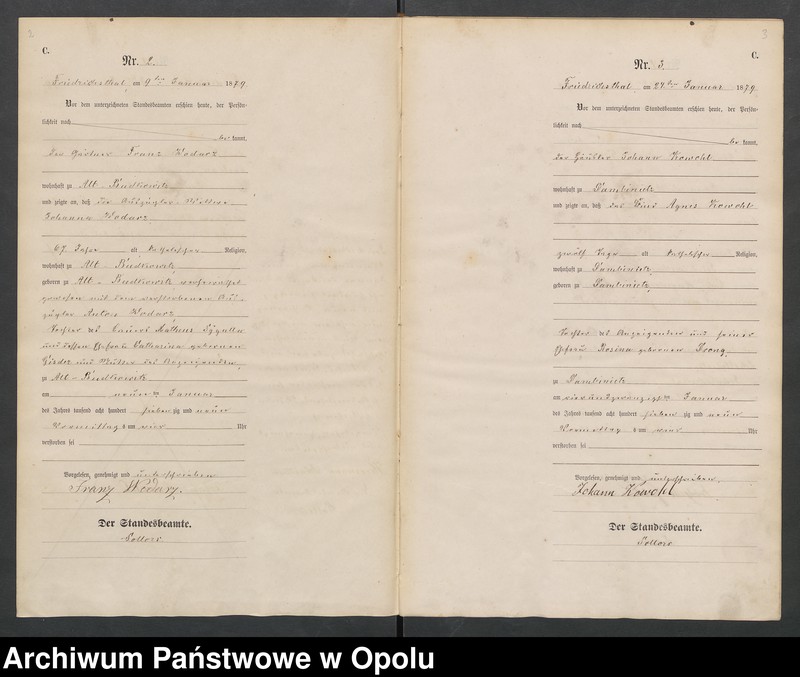 2
C.
Nr. 2.
Friedrichsthal am 9ten Januar 1879
Vor dem unterzeichneten Standesbeamten erschien heute, der Persön-
lichkeit nach
be kannt,
der Gärtner Franz Wodarz
wohnhaft zu Alt-Budkowitz
und zeigte an, daß die Auszügler-Wittwe
Johanna Wodarz
67 Jahre alt katholischer Religion,
wohnhaft zu Alt-Budkowitz
geboren zu Alt-Budkowitz verheirathet
gewesen mit dem verstorbenen Aus-
zügler Anton Wodarz,
Tochter des Bauers Mathus
und dessen Ehefrau Catharina geborenen
und Mutter des Anzeigenden,
zu Alt-Budkowitz
am neunten Januar
des Jahres tausend acht hundert sieben zig und neun
Vormittags um vier Uhr
verstorben sei
Vorgelesen, genehmigt und unterschrieben
Franz Wodarz.
Der Standesbeamte.
3
C.
Nr. 3.
Friedrichsthal am 24ten Januar 1879.
Vor dem unterzeichneten Standesbeamten erschien heute, der Persön-
lichkeit nach
be kannt,
der Häusler Johann Kowohl
wohnhaft zu Dambinietz
und zeigte an, daß das Kind Agnes Kowohl
zwölf Tage alt katholischer Religion,
wohnhaft zu Dambinietz,
geboren zu Dambinietz,
Tochter des Anzeigenden und seiner
Ehefrau Rosina geborenen
zu Dambinietz
am vierundzwanzigsten Januar
des Jahres tausend acht hundert sieben zig und neun
Vormittags um vier Uhr
verstorben sei
Vorgelesen, genehmigt und unterschrieben.
Johann Kowohl
Der Standesbeamte.
Archiwum Państwowe w Opolu